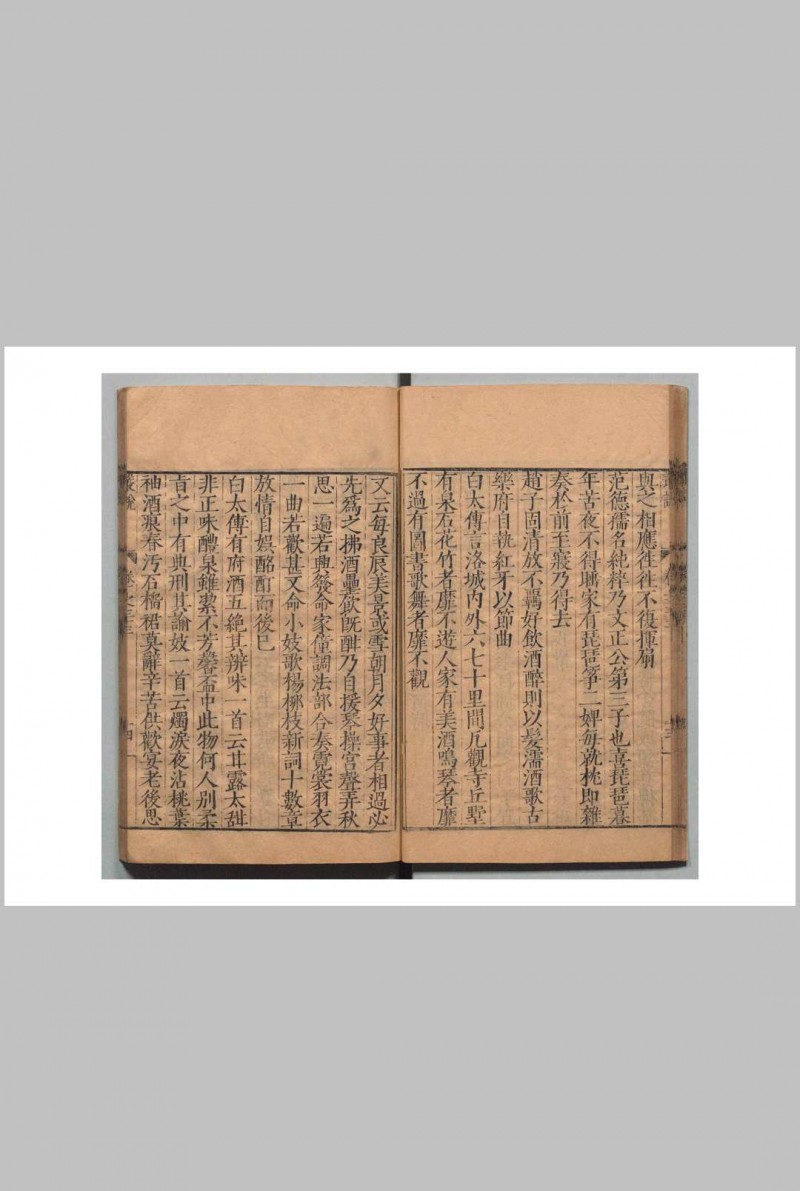 與之相應徃徃不復揮扇
范德孺名純粹乃文正公第三子也喜琵琶暮
年苦夜不得睡家有琵琶箏二婢每就枕即雜
奏於前至寢乃得去
趙子固清放不羈好飲酒醉則以髮濡酒歌古
樂府自執紅牙以節曲
白太傅言洛城內外六七十里間凢觀寺丘墅
有泉石花竹者靡不遊人家有美酒鳴琴者靡
不過有圖書歌舞者靡不觀
又云每良辰美景或雪朝月夕好事者相過必
先爲之拂酒罍飲既酣乃自援琴操宮聲弄秋
思一遍若興發命家僮調法部合奏霓裳羽衣
一曲若歡甚又命小妓歌楊桞枝新詞十數章
放情自娛酩酊而後已
白太傅有府酒五絕其辨味一首云甘露太甜
非正味醴泉雖潔不芳馨盃中此物何人別柔
旨之中有典刑其諭妓一首云燭淚夜沾桃葉
袖酒痕春汚石榴裙莫辭辛苦供歡宴老後思